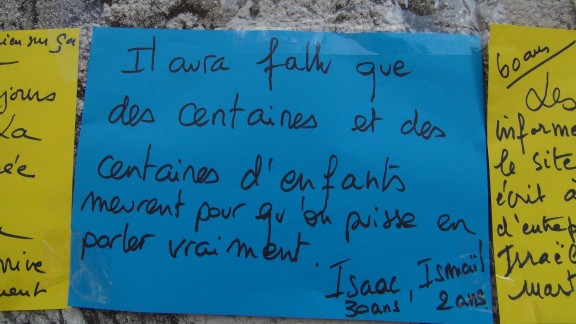 ien sur ça
jours
La
ée
rrive
ment
Il aura fallu que
des centaines et des
centaines d'enfants
meurent pour qu'on puisse en
parler vraiment.
Isaac, Ismaïl
30ans, 2 ans
60 ans
Les
informe
le site
écrit à
d'entrep
Israël
mart